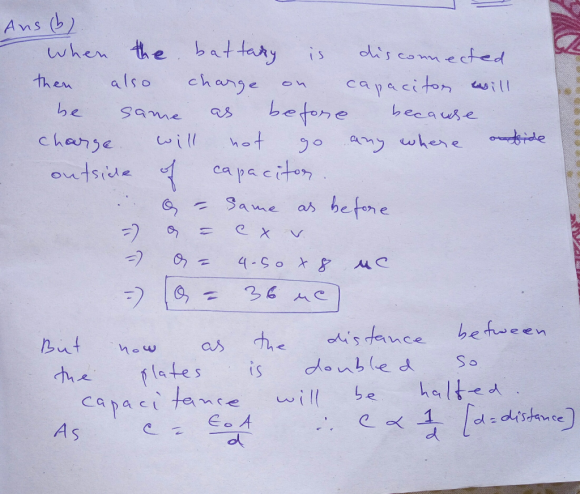 Ans (b)
When the battary is disconnected
then also charge on capacitor will
be same as before because
charge will not go any where outside
outside of capacitor.
∴ Q = Same as before
=) Q = C x V
=) Q = 4.50 x 8 μC
=) Q = 36 μC
But now as the distance between
the plates is doubled so
capacitance will be halfed.
As C = ε₀A/d ∴ C ∝ 1/d [d = distance]